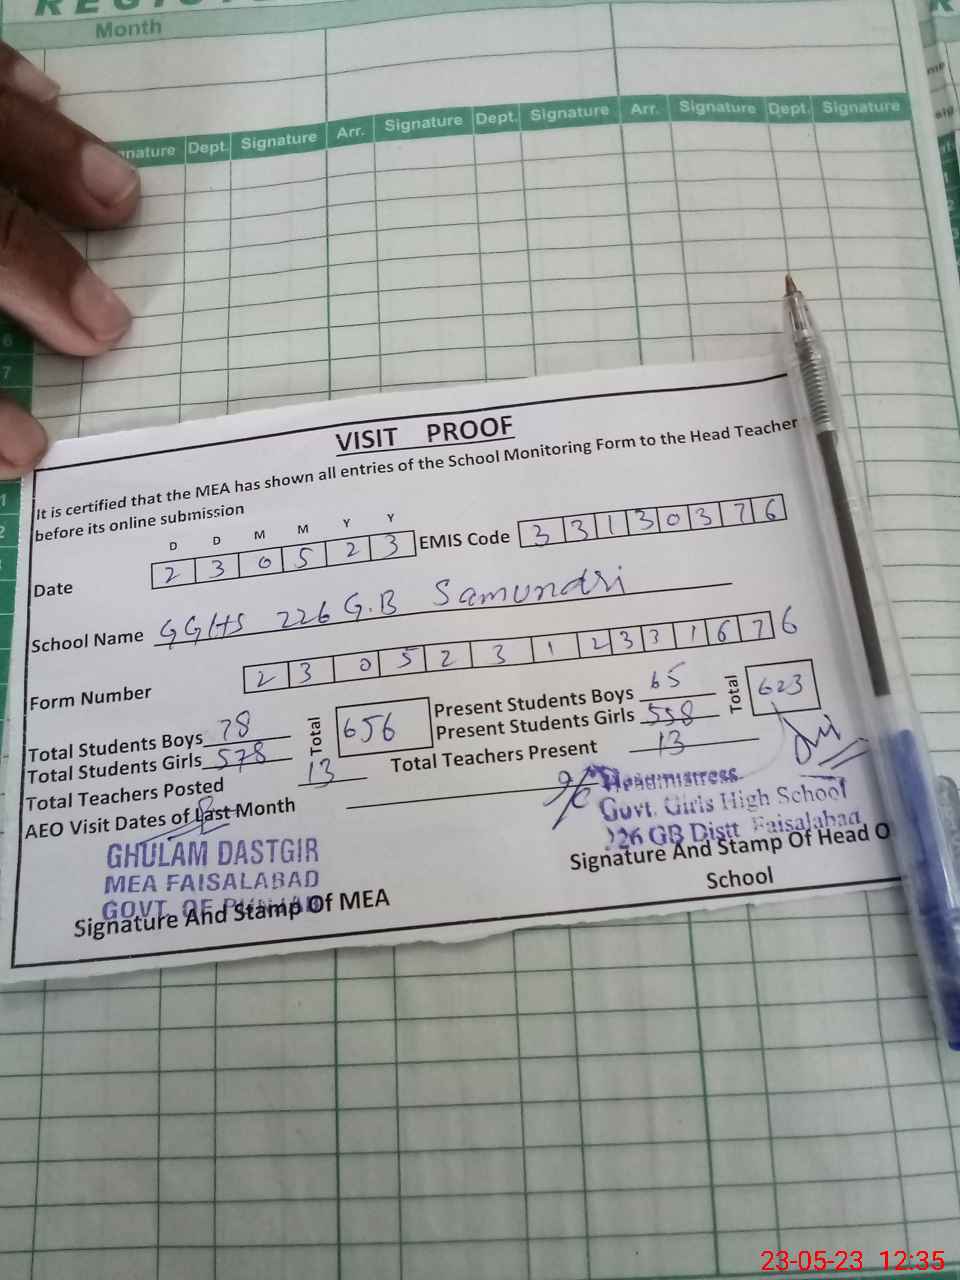 Month
Signature Dept. Signature Arr. Signature Dept. Signature Arr. Signature Dept. Signature
6
7
VISIT PROOF
It is certified that the MEA has shown all entries of the School Monitoring Form to the Head Teacher
before its online submission
D D M M Y Y
Date 2 3 0 5 2 3 EMIS Code 3 3 1 3 0 3 7 6
School Name GGHS 226 G.B Samundri
Form Number 2 3 0 5 2 3 1 2 3 3 1 6 7 6
Total Students Boys 78 Total 656 Present Students Boys 65 Total 623
Total Students Girls 578 Present Students Girls 558
Total Teachers Posted 13 Total Teachers Present 13
AEO Visit Dates of Last Month
Headmistress
Govt. Girls High School
226 GB Distt Faisalabad
GHULAM DASTGIR
MEA FAISALABAD
GOVT. OF PUNJAB
Signature And Stamp Of MEA
Signature And Stamp Of Head O
School
23-05-23 12:35